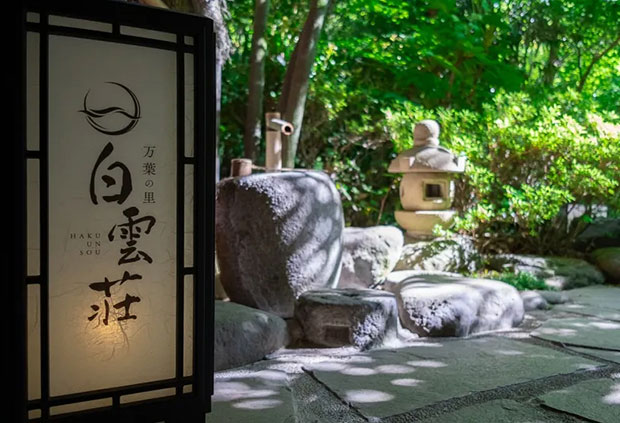 万葉の里
白雲荘
HAKU
UN
SOU